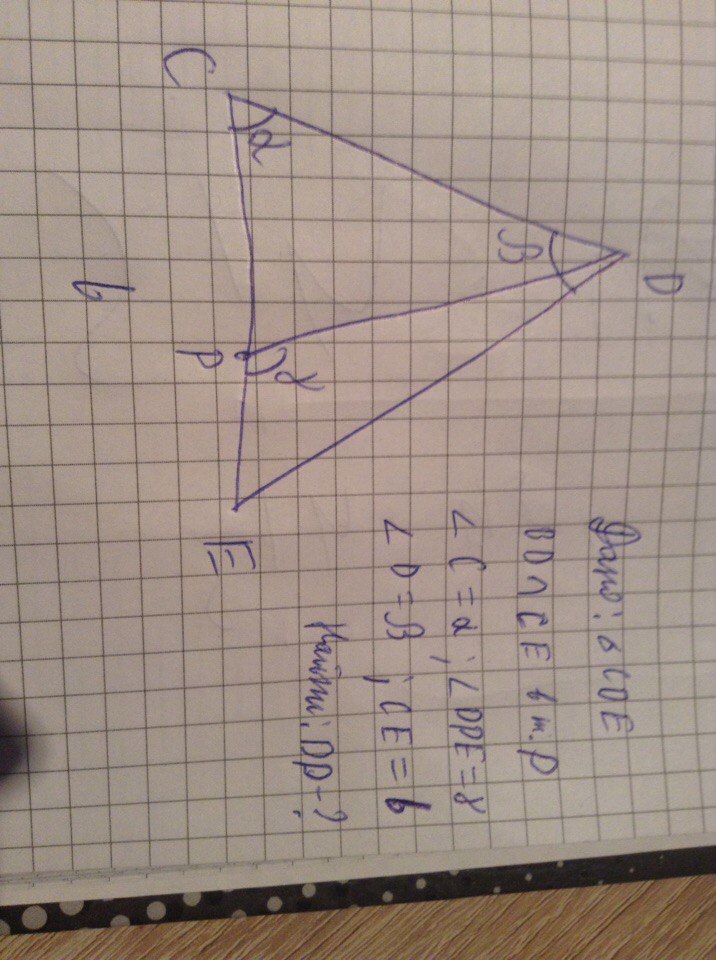 D
C
β
α
γ
P
E
b
Дано: △CDE
BD∩CE в т. P
∠C=α; ∠DPE=γ
∠D=β; CE=b
Найти: DP-?